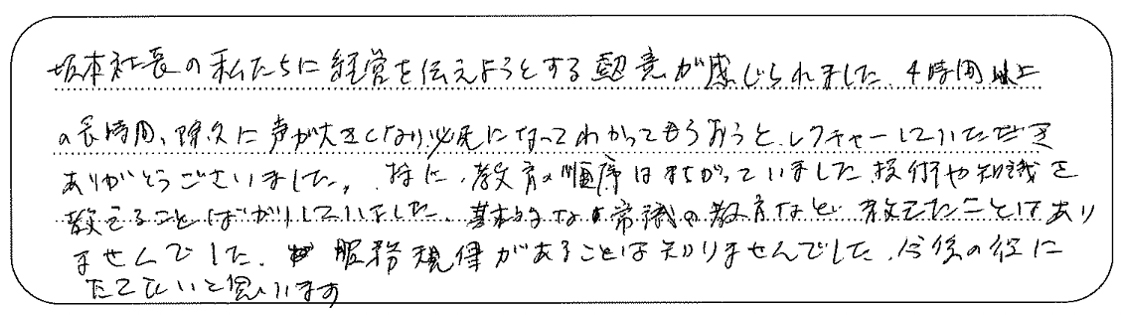 坂本社長の私たちに経営を伝えようとする熱意が感じられました。4時間以上
の長時間、除々に声が大きくなり必死になってわかってもらおうと、レクチャーしていただき
ありがとうございました。特に、教育の順序はまちがっていました。技術や知識を
教えることばかりしていました。基本的な常識の教育など、教えたことはあり
ませんでした。服務規律があることは知りませんでした。今後の役に
たてたいと思います